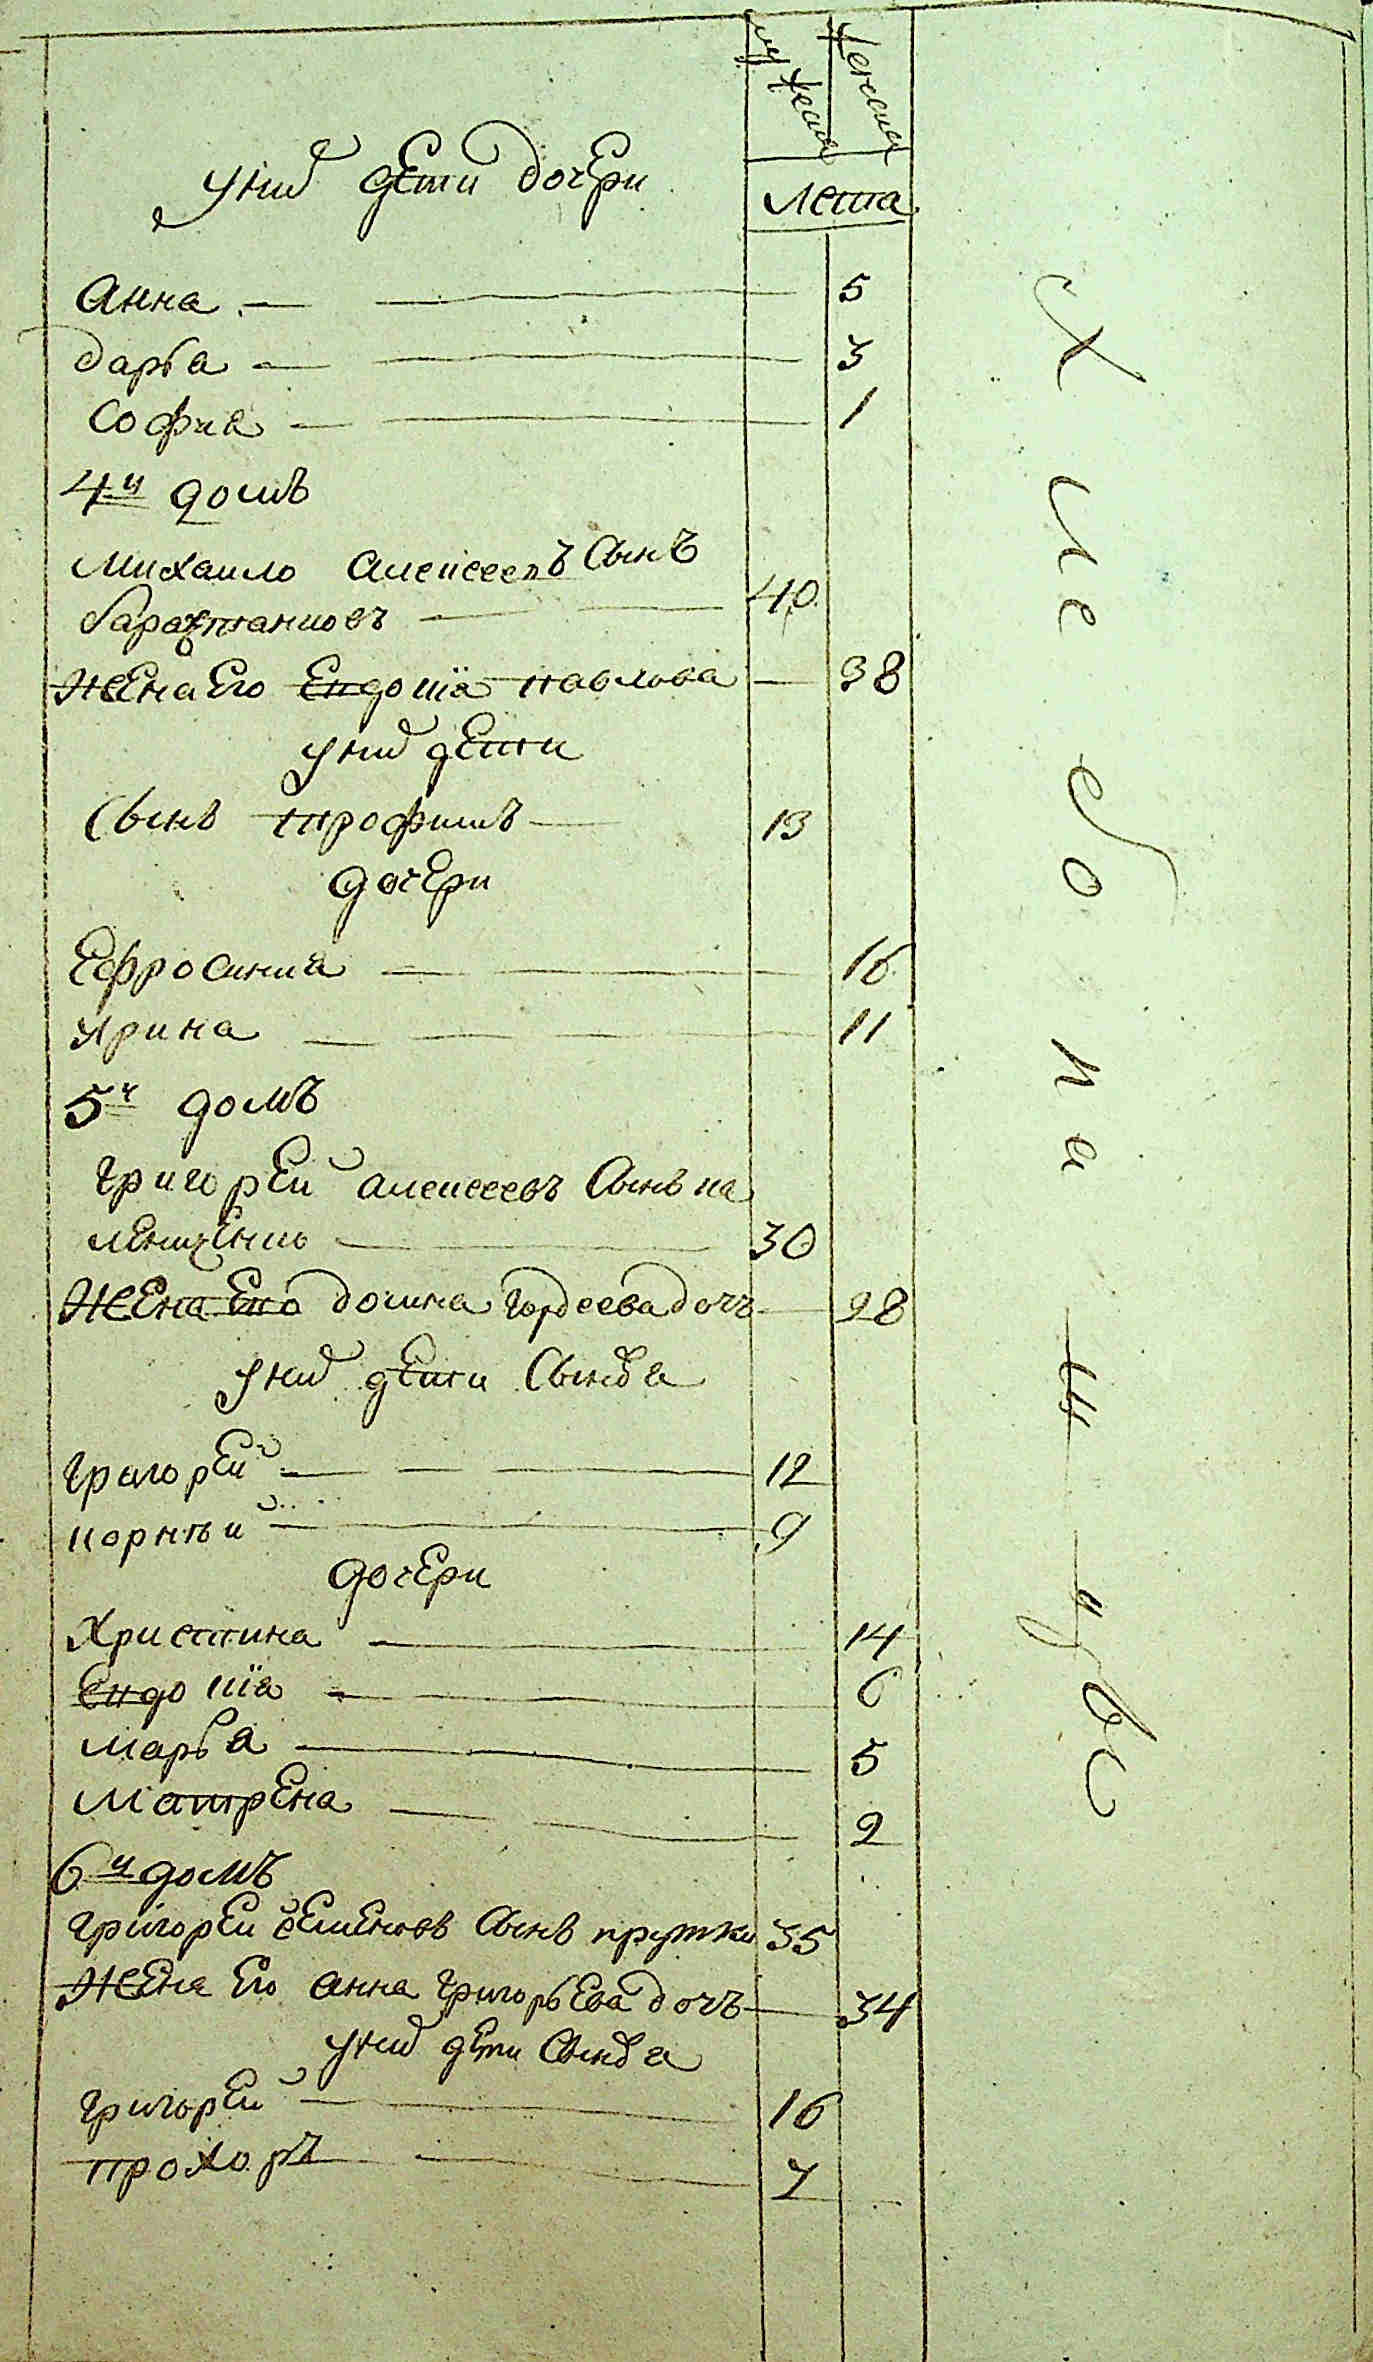 мужеска
женска
Лета
у нихъ дети дочери
Анна 5
дарья 3
София 1
4й домъ
михаило алексеевъ сынъ
40
жена его Евдокїа павлова 38
у нихъ дети
сынъ трофимъ 13
дочери
Ефросиния 16
Ирина 11
5й домъ
григорей алексеевъ сынъ
30
жена его домна гордеева дочь 28
у нихъ дети сыновя
григорей 12
корнѣй 9
дочери
христина 14
Евдокїа 6
марья 5
матрена 2
6й домъ
григорей семеновъ сынъ 35
жена его анна григорьева дочь 34
у нихъ дети сыновя
григорей 16
прохоръ 7